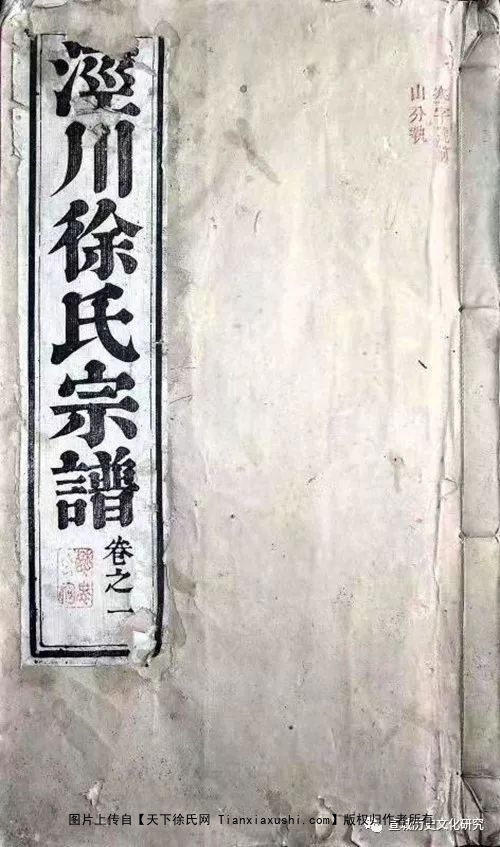 涇川徐氏宗譜
卷之一
山分號
图片上传自【天下徐氏网 Tianxiaxushi.com】版权归作者所有
宣城历史文化研究